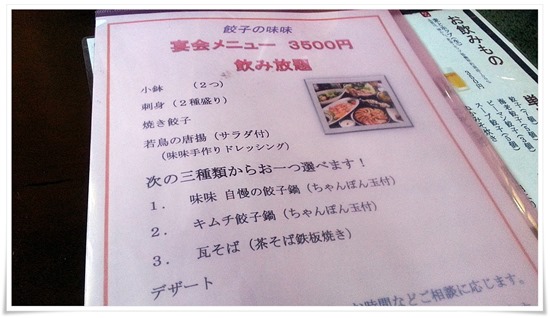 餃子の味味
宴会メニュー 3500円
飲み放題
小鉢 (2つ)
刺身 (2種盛り)
焼き餃子
若鳥の唐揚 (サラダ付)
(味味手作りドレッシング)
次の三種類からお一つ選べます!
1. 味味 自慢の餃子鍋 (ちゃんぽん玉付)
2. キムチ餃子鍋 (ちゃんぽん玉付)
3. 瓦そば (茶そば鉄板焼き)
デザート
お時間などご相談に応じます。
お飲みもの